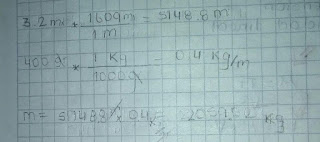 3.2 mi * 1609 m / 1 m = 5148.8 m
400 g * 1 Kg / 1000 g = 0.4 Kg/m
m = 5148.8 * 0.4 Kg